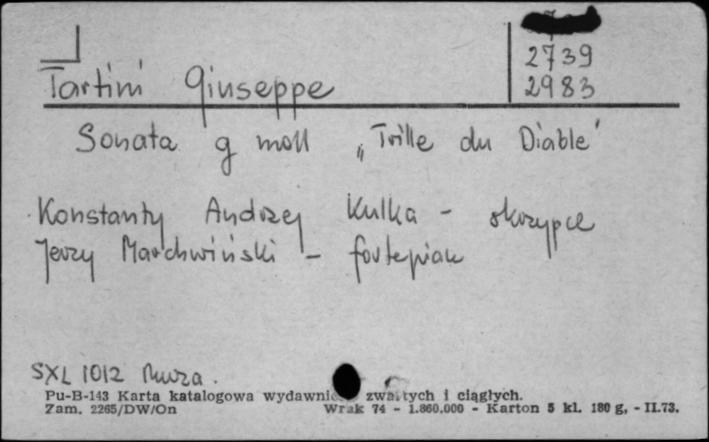 2739
Tartini Giuseppe 2983
Sonata g moll „Trille du Diable"
Konstanty Andrzej Kulka - skrzypce
Jerzy Marchwiński - fortepian
SXL 1012 Muza.
Pu-B-143 Karta katalogowa wydawnic zwartych i ciągłych.
Zam. 2265/DW/On Wrak 74 - 1.860.000 - Karton 5 kl. 180 g, - II.73.